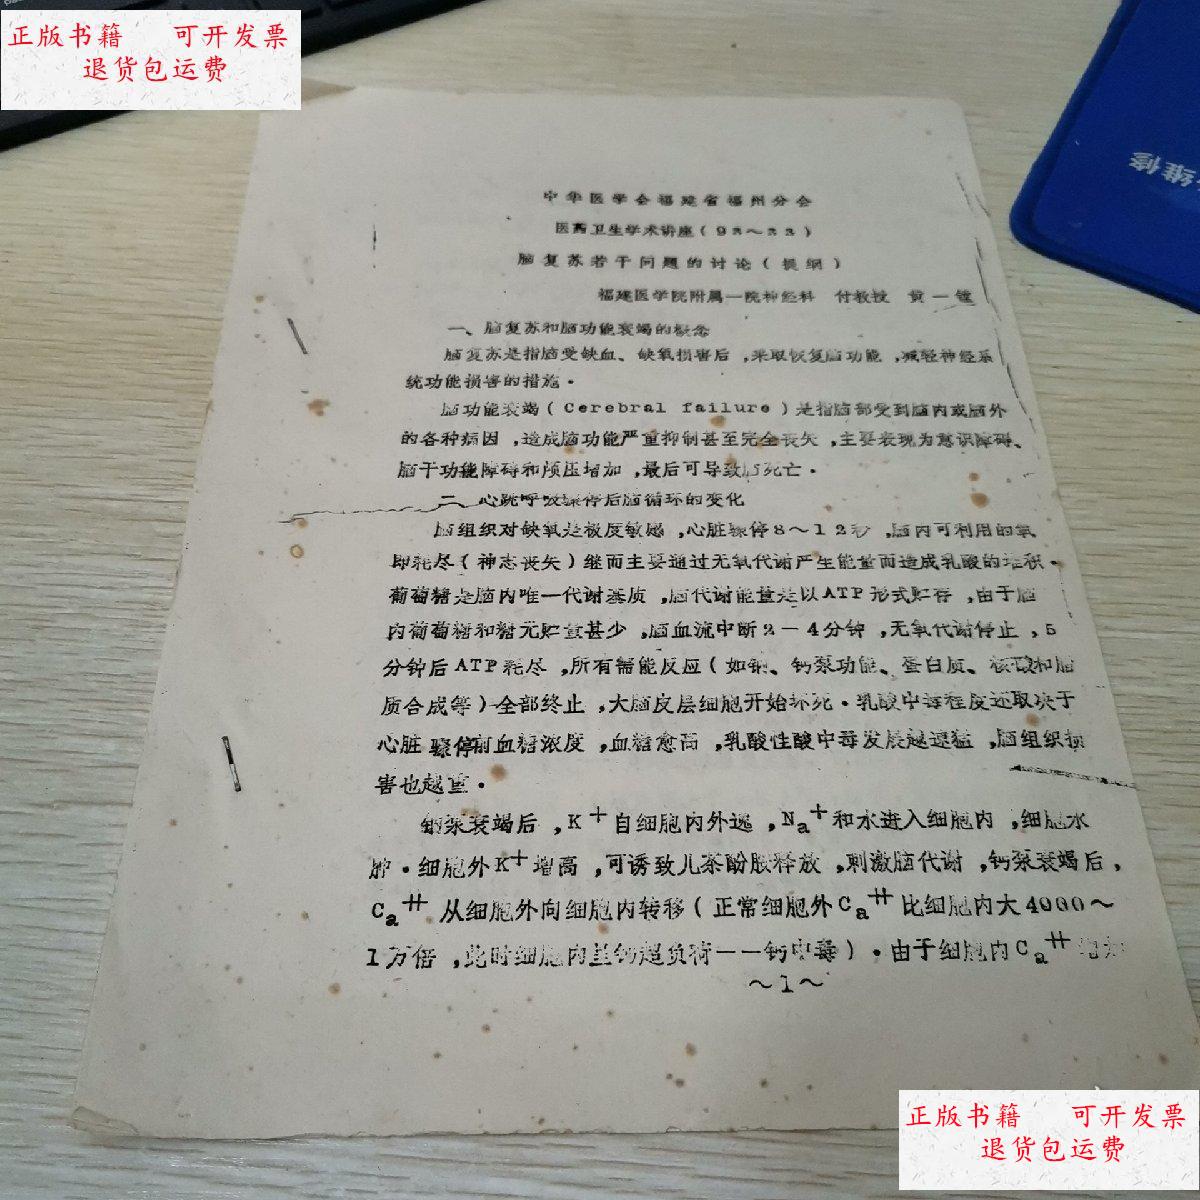 正版书籍 可开发票
退货包运费
维修
中华医学会福建省福州分会
医药卫生学术讲座(93～33)
脑复苏若干问题的讨论(提纲)
福建医学院附属一院神经科 付教授 黄一
一、脑复苏和脑功能衰竭的概念
脑复苏是指脑受缺血、缺氧损害后,采取恢复脑功能,减轻神经系
统功能损害的措施.
脑功能衰竭(Cerebral failure)是指脑部受到脑内或脑外
的各种病因,造成脑功能严重抑制甚至完全丧失,主要表现为意识障碍、
脑干功能障碍和颅压增加,最后可导致脑死亡.
二、心跳呼吸骤停后脑循环的变化
脑组织对缺氧是极度敏感,心脏骤停8～12秒,脑内可利用的氧
即耗尽(神志丧失)继而主要通过无氧代谢产生能量而造成乳酸的堆积.
葡萄糖是脑内唯一代谢基质,脑代谢能量是以ATP形式贮存,由于脑
内葡萄糖和糖元贮量甚少,脑血流中断2－4分钟,无氧代谢停止,5
分钟后ATP耗尽,所有需能反应(如钠、钙泵功能、蛋白质、核酸和脂
质合成等)全部终止,大脑皮层细胞开始坏死.乳酸中毒程度还取决于
心脏骤停前血糖浓度,血糖愈高,乳酸性酸中毒发展越迅猛,脑组织损
害也越重.
钠泵衰竭后,K＋自细胞内外逸,Na＋和水进入细胞内,细胞水
肿.细胞外K＋增高,可诱致儿茶酚胺释放,刺激脑代谢,钙泵衰竭后,
Ca⧺从细胞外向细胞内转移(正常细胞外Ca⧺比细胞内大4000～
1万倍,此时细胞内呈钙超负荷——钙中毒).由于细胞内Ca⧺增加
～1～
正版书籍 可开发票
退货包运费